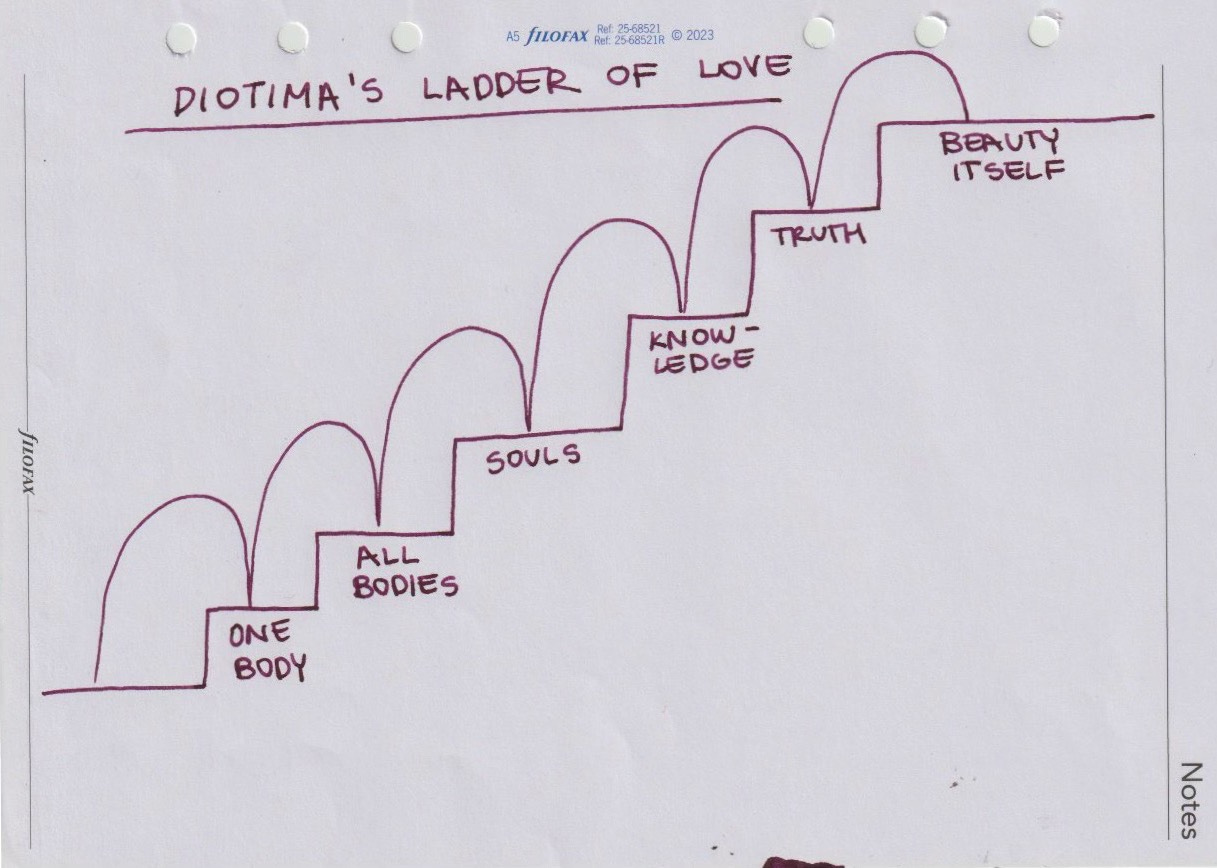 A5 FILOFAX Ref: 25-68521 © 2023
Ref: 25-68521R
DIOTIMA'S LADDER OF LOVE
BEAUTY
ITSELF
TRUTH
KNOW-
LEDGE
SOULS
ALL
BODIES
ONE
BODY
FILOFAX
Notes